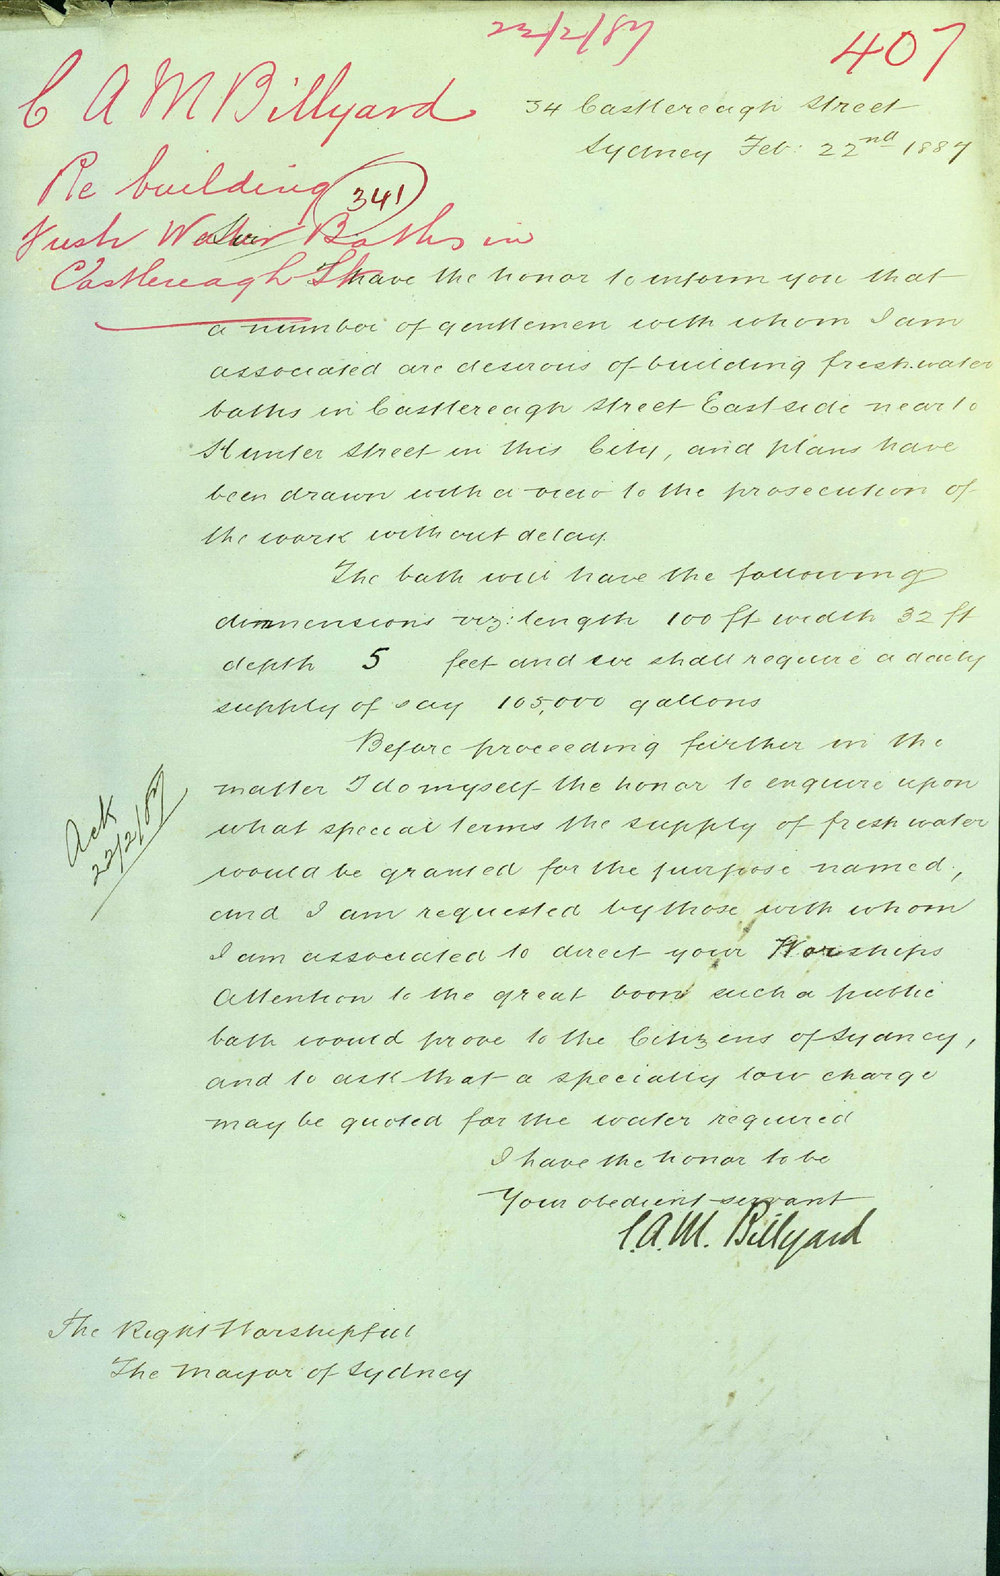 22/2/87
407
C A M Billyard
34 Castlereagh Street
Sydney Feb: 22nd 1887
Re building
341
Fresh Water Baths in
Sir
Castlereagh St
I have the honor to inform you that
a number of gentlemen with whom I am
associated are desirous of building fresh water
baths in Castlereagh Street East side near to
Hunter Street in this City, and plans have
been drawn with a view to the prosecution of
the work without delay.
The bath will have the following
dimmensions viz: length 100 ft width 32 ft
depth 5 feet and we shall require a daily
supply of say 105,000 gallons
Before proceeding further in the
matter I do myself the honor to enquire upon
what special terms the supply of fresh water
would be granted for the purpose named,
and I am requested by those with whom
I am associated to direct your Worships
Attention to the great boon such a public
bath would prove to the Citizens of Sydney,
and to ask that a specially low charge
may be quoted for the water required
I have the honor to be
Your obedient servant
C.A.M. Billyard
Ack
22/2/87
The Right Worshipful
The Mayor of Sydney